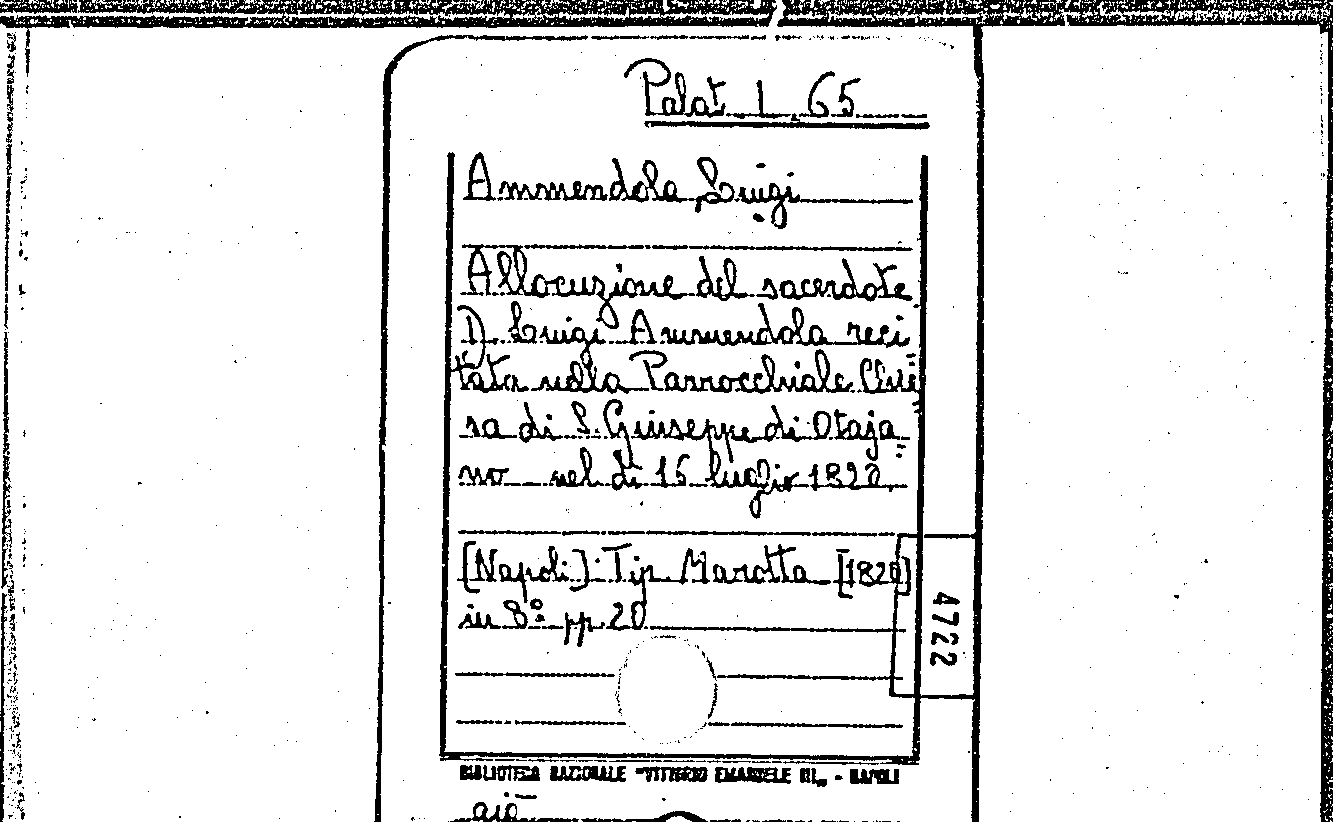 Palat. I 65
Ammendola, Luigi
Allocuzione del sacerdote
D. Luigi Ammendola reci
tata nella Parrocchiale Chie
sa di S. Giuseppe di Otaja
no nel dì 16 luglio 1820.
[Napoli] Tip. Marotta [1820]
in 8º pp. 20
4722
BIBLIOTECA NAZIONALE "VITTORIO EMANUELE III" - NAPOLI